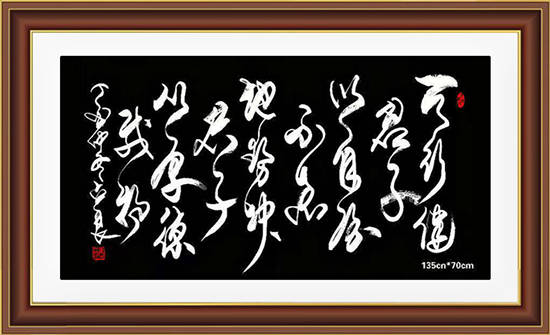 天行健
君子
以自强
不息
地势坤
君子
以厚德
载物
丁酉仲冬
135cn*70cm